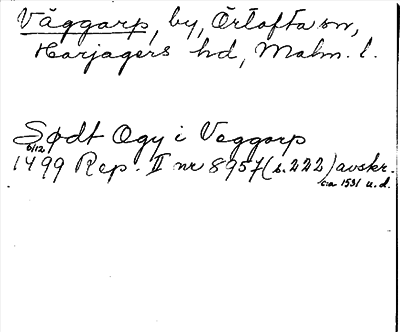 Väggarp, by, Örtofta sn,
Harjagers hd, Malm. l.
Sødt Ogy i Veggarp
6/12
1499 Rep. II nr 8957 (s. 222) avskr.
ca 1531 u. d.